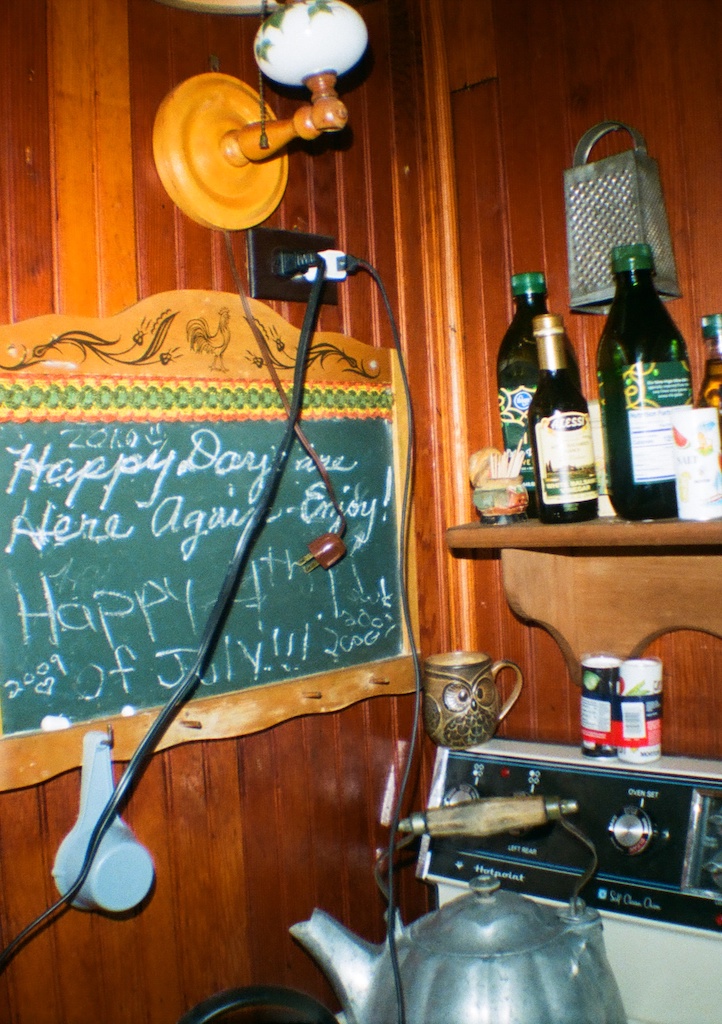 2010
Happy Days are
Here Again - Enjoy!
Happy 4th
of July!!!
2009
ALESSI
SALT
OVEN SET
LEFT REAR
Hotpoint
Self Clean Oven